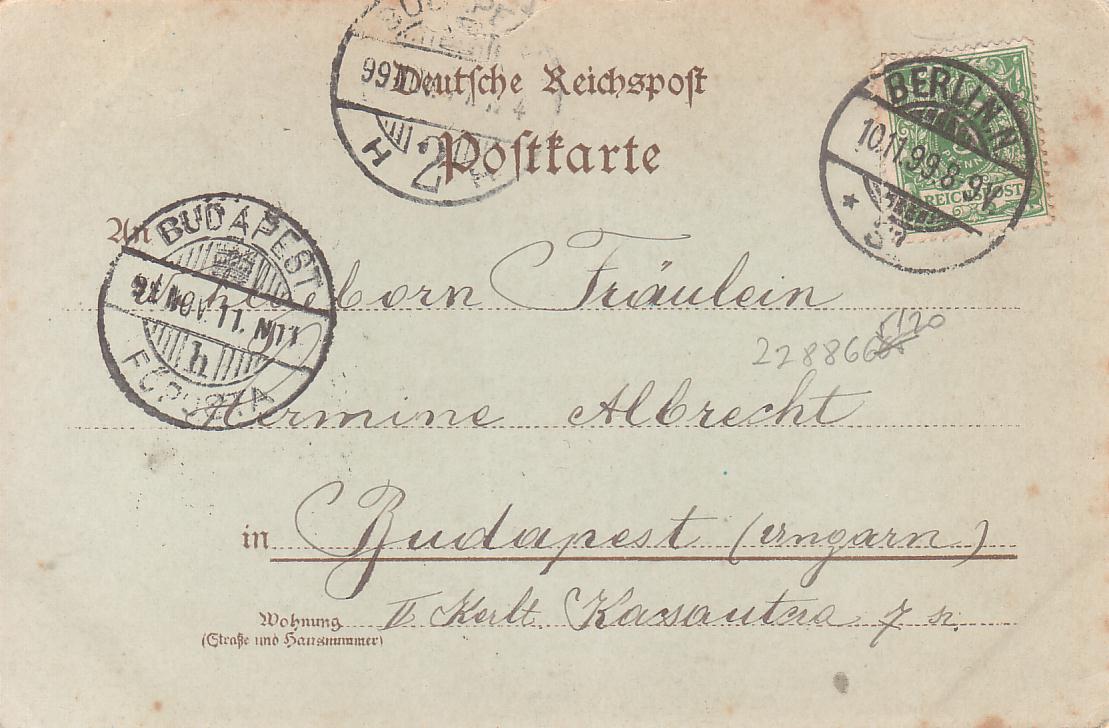 Deutsche Reichspost
Postkarte
BUDAPEST
99
H 2 H
BERLIN.N
10.11.99.8-9V.
REICHSPOST
An
BUDAPEST
NOV. 11. N11
h
FŐPOSTA
Hochgeborn Fräulein
228866
5120
Hermine Albrecht
in Budapest (Ungarn)
Wohnung II Kerlt. 7 sz.
(Straße und Hausnummer)